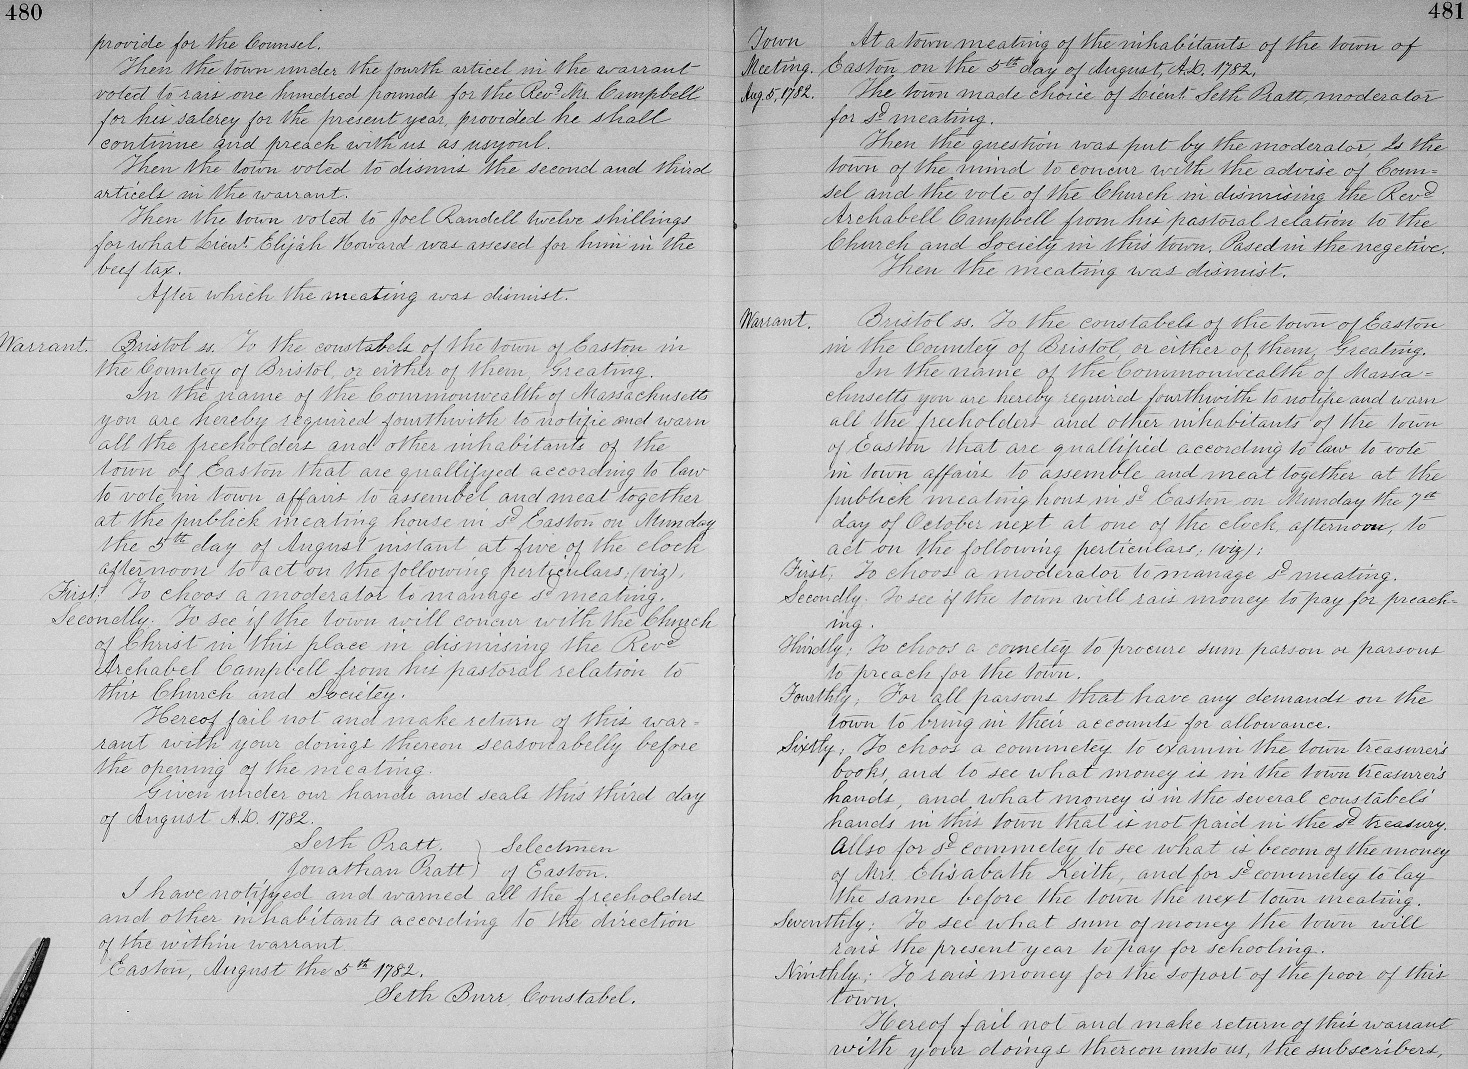 480
provide for the Counsel.
Then the town under the fourth articel in the warrant
voted to rais one hundred pounds for the Revd Mr. Campbell
for his salerey for the present year, provided he shall
continue and preach with us as usyoul.
Then the town voted to dismis the second and third
articels in the warrant.
Then the town voted to Joel Randell twelve shillings
for what Lieut. Elijah Howard was assesed for him in the
beef tax.
After which the meating was dismist.
Warrant. Bristol ss. To the constabels of the town of Easton in
the Countey of Bristol, or either of them, Greating.
In the name of the Commonwealth of Massachusetts
you are hereby required fourthwith to notifie and warn
all the freeholders and other inhabitants of the
town of Easton that are quallifyed according to law
to vote in town affairs to assembel and meat together
at the publick meating house in sd Easton on Munday
the 5th day of August instant at five of the clock
afternoon to act on the following perticulars; (viz),
First: To choos a moderator to manage sd meating.
Secondly. To see if the town will concur with the Church
of Christ in this place in dismising the Revd
Archabel Campbell from his pastoral relation to
this Church and Societey.
Hereof fail not and make return of this war-
rant with your doings thereon seasonabelly before
the opening of the meating.
Given under our hands and seals this third day
of August A.D. 1782.
Seth Pratt. } Selectmen
Jonathan Pratt } of Easton.
I have notifyed and warned all the freeholders
and other inhabitants according to the direction
of the within warrant
Easton, August the 5th 1782.
Seth Burr, Constabel.
481
Town Meeting. Aug. 5, 1782.
At a town meating of the inhabitants of the town of
Easton on the 5th day of August, A.D. 1782,
The town made choice of Lieut. Seth Pratt, moderator
for sd meating.
Then the question was put by the moderator, Is the
town of the mind to concur with the advise of Coun=
sel and the vote of the Church in dismising the Revd
Archabell Campbell from his pastoral relation to the
Church and Society in this town. Pased in the negetive.
Then the meating was dismist.
Warrant. Bristol ss. To the constabels of the town of Easton
in the Countey of Bristol, or either of them, Greating.
In the name of the Commonwealth of Massa=
chusetts you are hereby required fourthwith to notifie and warn
all the freeholders and other inhabitants of the town
of Easton that are quallified according to law to vote
in town affairs to assemble and meat together at the
publick meating hous in sd Easton on Munday the 7th
day of October next at one of the clock, afternoon, to
act on the following perticulars; (viz);
First; To choos a moderator to manage sd meating.
Secondly. To see if the town will rais money to pay for preach-
ing.
Thirdly; To choos a cometey to procure sum parson or parsons
to preach for the town.
Fourthly; For all parsons that have any demands on the
town to bring in their accounts for allowance.
Sixtly; To choos a commetey to examin the town treasurer's
books, and to see what money is in the town treasurer's
hands, and what money is in the several constabels'
hands in this town that is not paid in the sd treasury.
Allso for sd commetey to see what is becom of the money
of Mrs. Elisabath Keith, and for sd commetey to lay
the same before the town the next town meating.
Seventhly; To see what sum of money the town will
rais the present year to pay for schooling.
Ninthly; To rais money for the soport of the poor of this
town.
Hereof fail not and make return of this warrant
with your doings thereon unto us, the subscribers,